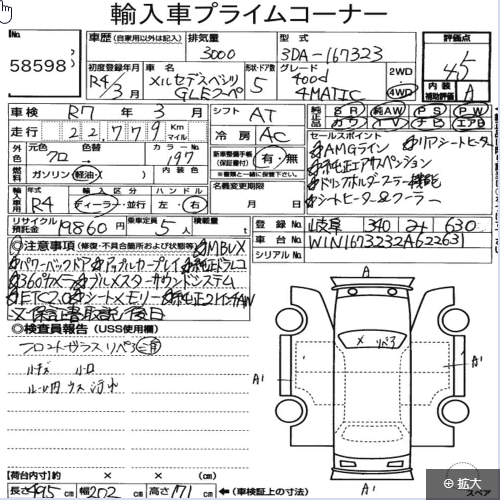 輸入車プライムコーナー
No. 58598
車歴 (自家用以外は記入)
排気量 3000
型式 3DA-167323
評価点 4.5
初度登録年月 R4年3月
車名 メルセデスベンツ GLEクーペ
形状・ドア数 5
グレード 400d 4MATIC
2WD
4WD
内装補助評価 A
車検 R7年3月
シフト AT
走行 22779 Km マイル
冷房 AC
純正品 SR 純AW PS PW
カワ TV ナビ エアB
外色 元色 クロ → 色替
カラーNo. 197
燃料 ガソリン 軽油
内装色
新車整備手帳(保証書付) 有・無
※書類と一緒に保管して下さい。
セールスポイント
☆AMGライン ☆リアシートヒーター
☆純正エアサスペンション
☆ドリンクホルダークーラー機能
☆シートヒーター&クーラー
輸入車 年式 R4
輸入区分 ディーラー・並行
ハンドル 左・右
名義変更期限 月 日
リサイクル預託金 19860円
乗車定員 5人
積載量 t
登録No. 岐阜 340 み 630
車台No. W1N1673232A622631
シリアルNo.
◎注意事項 (修復・不具合箇所および状態等) ☆MBUX
☆パワーバックドア ☆アップルカープレイ ☆純正ドラレコ
☆360°カメラ ☆ブルメスターサウンドシステム
☆ETC2.0 ☆シートメモリー ☆純正21インチAW
☆保証書取説後日
◎検査員報告 (USS使用欄)
フロントガラス リペア有
ルーム内 ウス汚れ
A
×リペア3
A'
A'
A'
【荷台内寸】約 × × cm
長さ 495 cm 幅 202 cm 高さ 171 cm ←(車検証上の寸法)
スペア
拡大